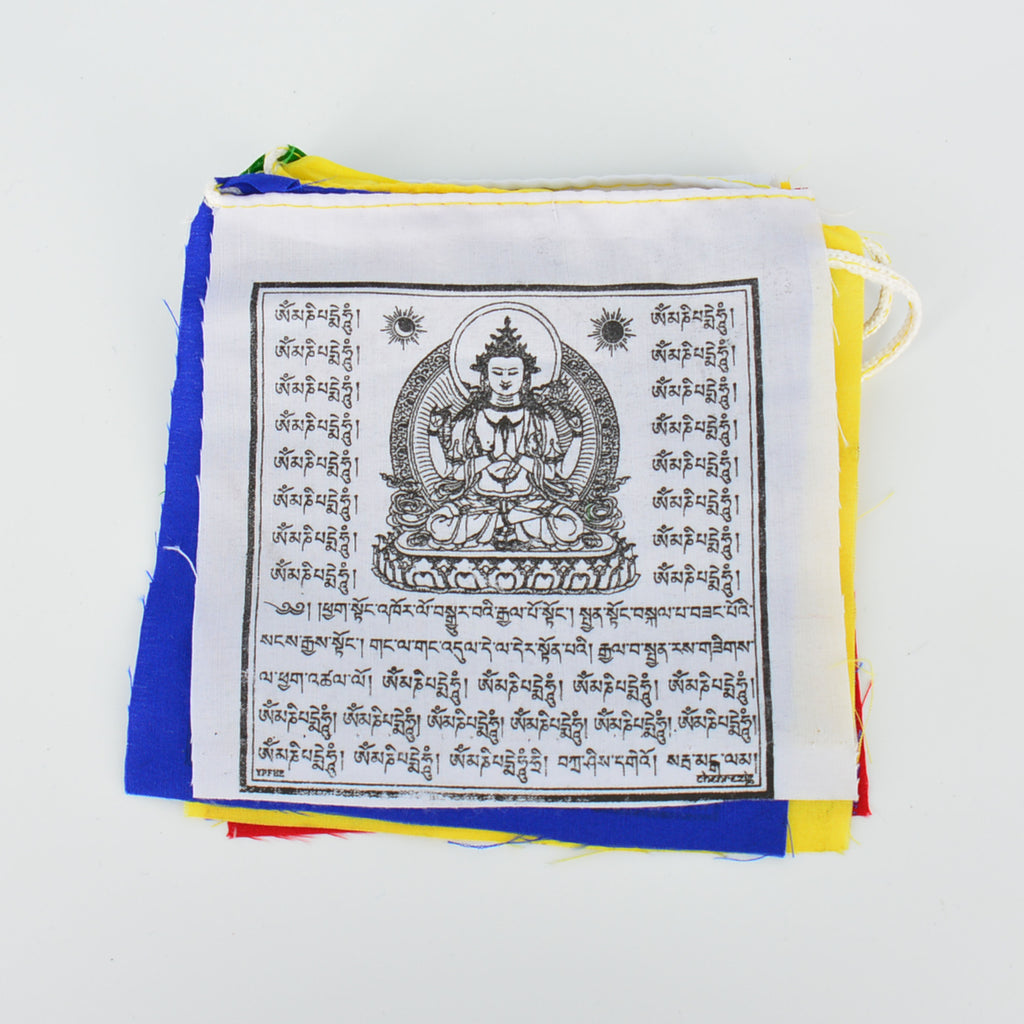 ཨོཾམཎིཔདྨེཧཱུྃ། ཨོཾམཎིཔདྨེཧཱུྃ།
ཨོཾམཎིཔདྨེཧཱུྃ། ཨོཾམཎིཔདྨེཧཱུྃ།
ཨོཾམཎིཔདྨེཧཱུྃ། ཨོཾམཎིཔདྨེཧཱུྃ།
ཨོཾམཎིཔདྨེཧཱུྃ། ཨོཾམཎིཔདྨེཧཱུྃ།
ཨོཾམཎིཔདྨེཧཱུྃ། ཨོཾམཎིཔདྨེཧཱུྃ།
ཨོཾམཎིཔདྨེཧཱུྃ། ཨོཾམཎིཔདྨེཧཱུྃ།
ཨོཾམཎིཔདྨེཧཱུྃ། ཨོཾམཎིཔདྨེཧཱུྃ།
ཨོཾམཎིཔདྨེཧཱུྃ། ཨོཾམཎིཔདྨེཧཱུྃ།
༄༅། །ཕྱག་སྟོང་འཁོར་ལོ་བསྒྱུར་བའི་རྒྱལ་པོ་སྟོང་། སྤྱན་སྟོང་བསྐལ་པ་བཟང་པོའི་
སངས་རྒྱས་སྟོང་། གང་ལ་གང་འདུལ་དེ་ལ་དེར་སྟོན་པའི། རྒྱལ་བ་སྤྱན་རས་གཟིགས་
ལ་ཕྱག་འཚལ་ལོ། ཨོཾམཎིཔདྨེཧཱུྃ། ཨོཾམཎིཔདྨེཧཱུྃ། ཨོཾམཎིཔདྨེཧཱུྃ། ཨོཾམཎིཔདྨེཧཱུྃ།
ཨོཾམཎིཔདྨེཧཱུྃ། ཨོཾམཎིཔདྨེཧཱུྃ། ཨོཾམཎིཔདྨེཧཱུྃ། ཨོཾམཎིཔདྨེཧཱུྃ། ཨོཾམཎིཔདྨེཧཱུྃ། ཨོཾམཎིཔདྨེཧཱུྃ།
ཨོཾམཎིཔདྨེཧཱུྃ། ཨོཾམཎིཔདྨེཧཱུྃ། ཨོཾམཎིཔདྨེཧཱུྃཧྲི། བཀྲ་ཤིས་དགེའོ། སརྦ་མངྒ་ལམ།